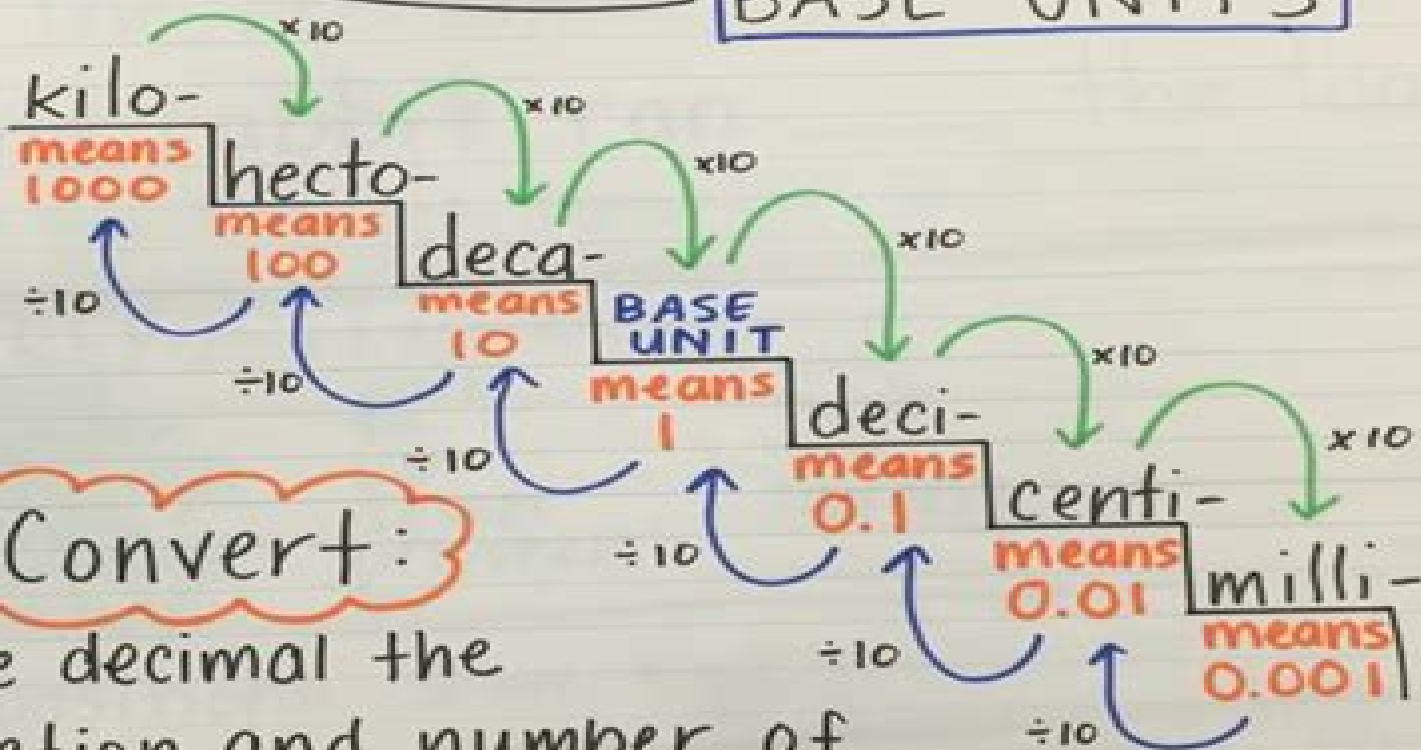 BASE UNITS
x10
kilo-
means
1000
x10
hecto-
means
100
x10
deca-
means
10
x10
BASE
UNIT
means
1
x10
deci-
means
0.1
x10
centi-
means
0.01
milli-
means
0.001
÷10
÷10
÷10
÷10
÷10
÷10
Convert:
decimal the
and number of